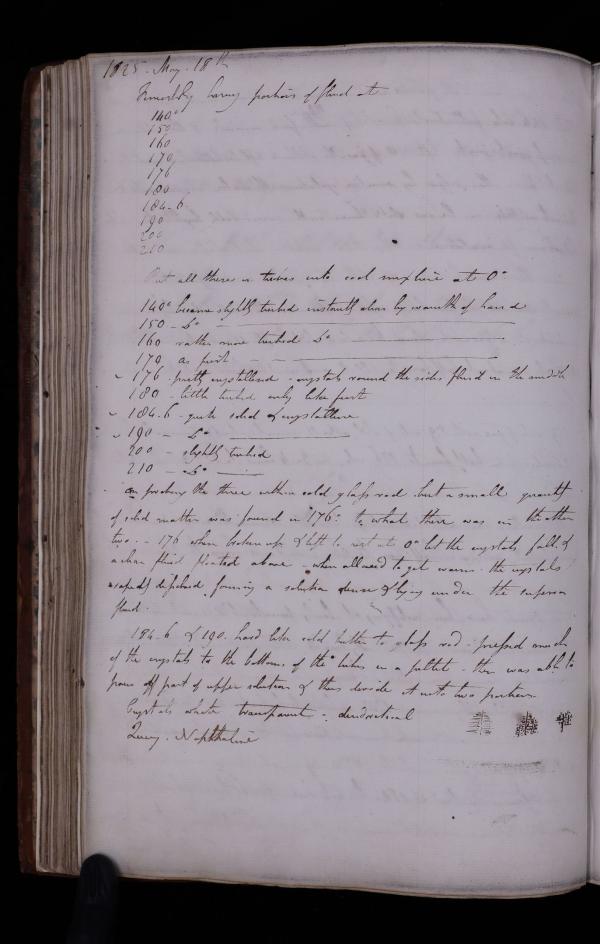 1825. May. 18th
having portions of fluid at
140°
150
160
170
176
180
184.6
190
200
210
Put all these in tubes into cool mixture at 0°
140° became slightly turbid instantly clear by warmth of hand
150 - Do -
160 rather more turbid Do
170 as first
176 pretty crystallised - crystals round the sides fluid in the middle
180 - little turbid only like first
184.6 - quite solid & crystalline
190 - Do
200 - slightly turbid
210 - Do
On poking the three with a cold glass rod but a small quantity
of solid matter was found in 176° to what there was in the other
two. - 176 when broken up & left to rest at 0° let the crystals fall &
a clear fluid floated above - when allowed to get warm the crystals
forming a solution dense & lying under the superior
fluid.
184.6 & 190. hard like cold butter to glass rod - pressed much
of the crystals to the bottoms of the tubes in a then was able to
pour off part of upper solutions & thus divide it into two portions
Crystals white transparent - dendritical
Query. Naphthaline